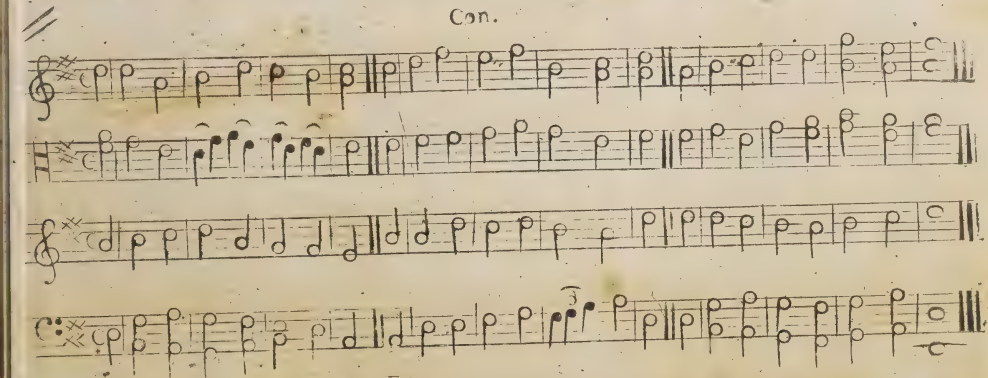 Con.
3